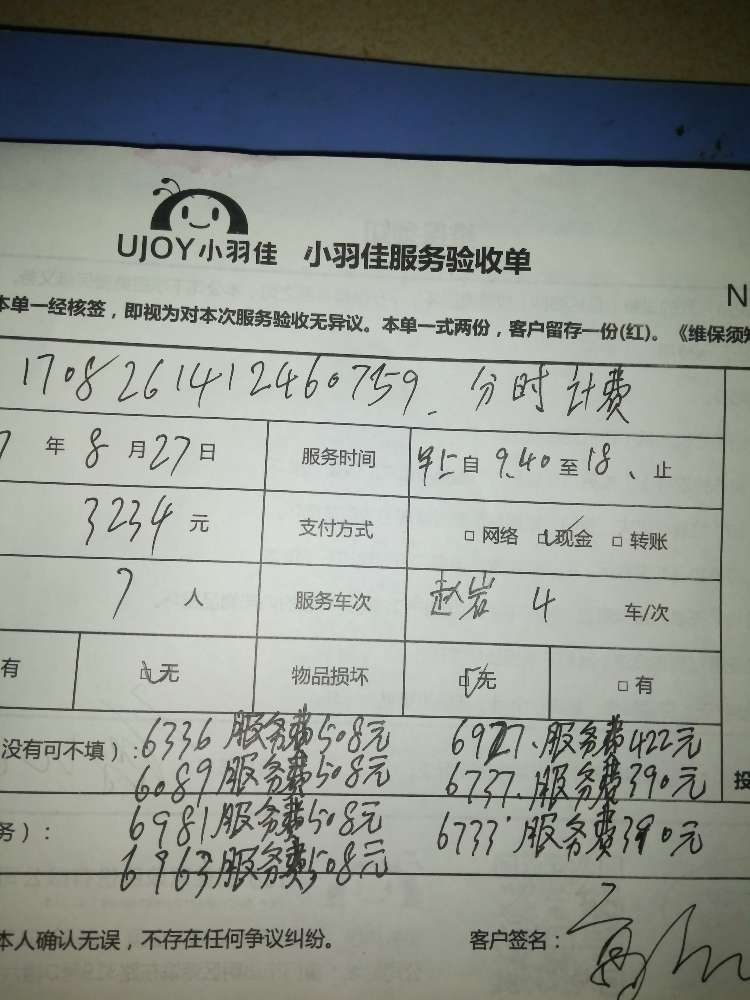 UJOY小羽佳 小羽佳服务验收单
N
本单一经核签，即视为对本次服务验收无异议。本单一式两份，客户留存一份(红)。《维保须知
170826141412460759. 分时计费
7 年 8 月 27 日 服务时间 自 9.40 至 18、止
3234 元 支付方式 □ 网络 □ 现金 □ 转账
7 人 服务车次 赵岩 4 车/次
有 □ 无 物品损坏 □ 无 □ 有
没有可不填）: 6336 服务费508元 6927.服务费422元
投
6089服务费508元 6737.服务费390元
务）: 6981服务费508元 6733 服务费390元
6963服务费508元
本人确认无误，不存在任何争议纠纷。 客户签名：